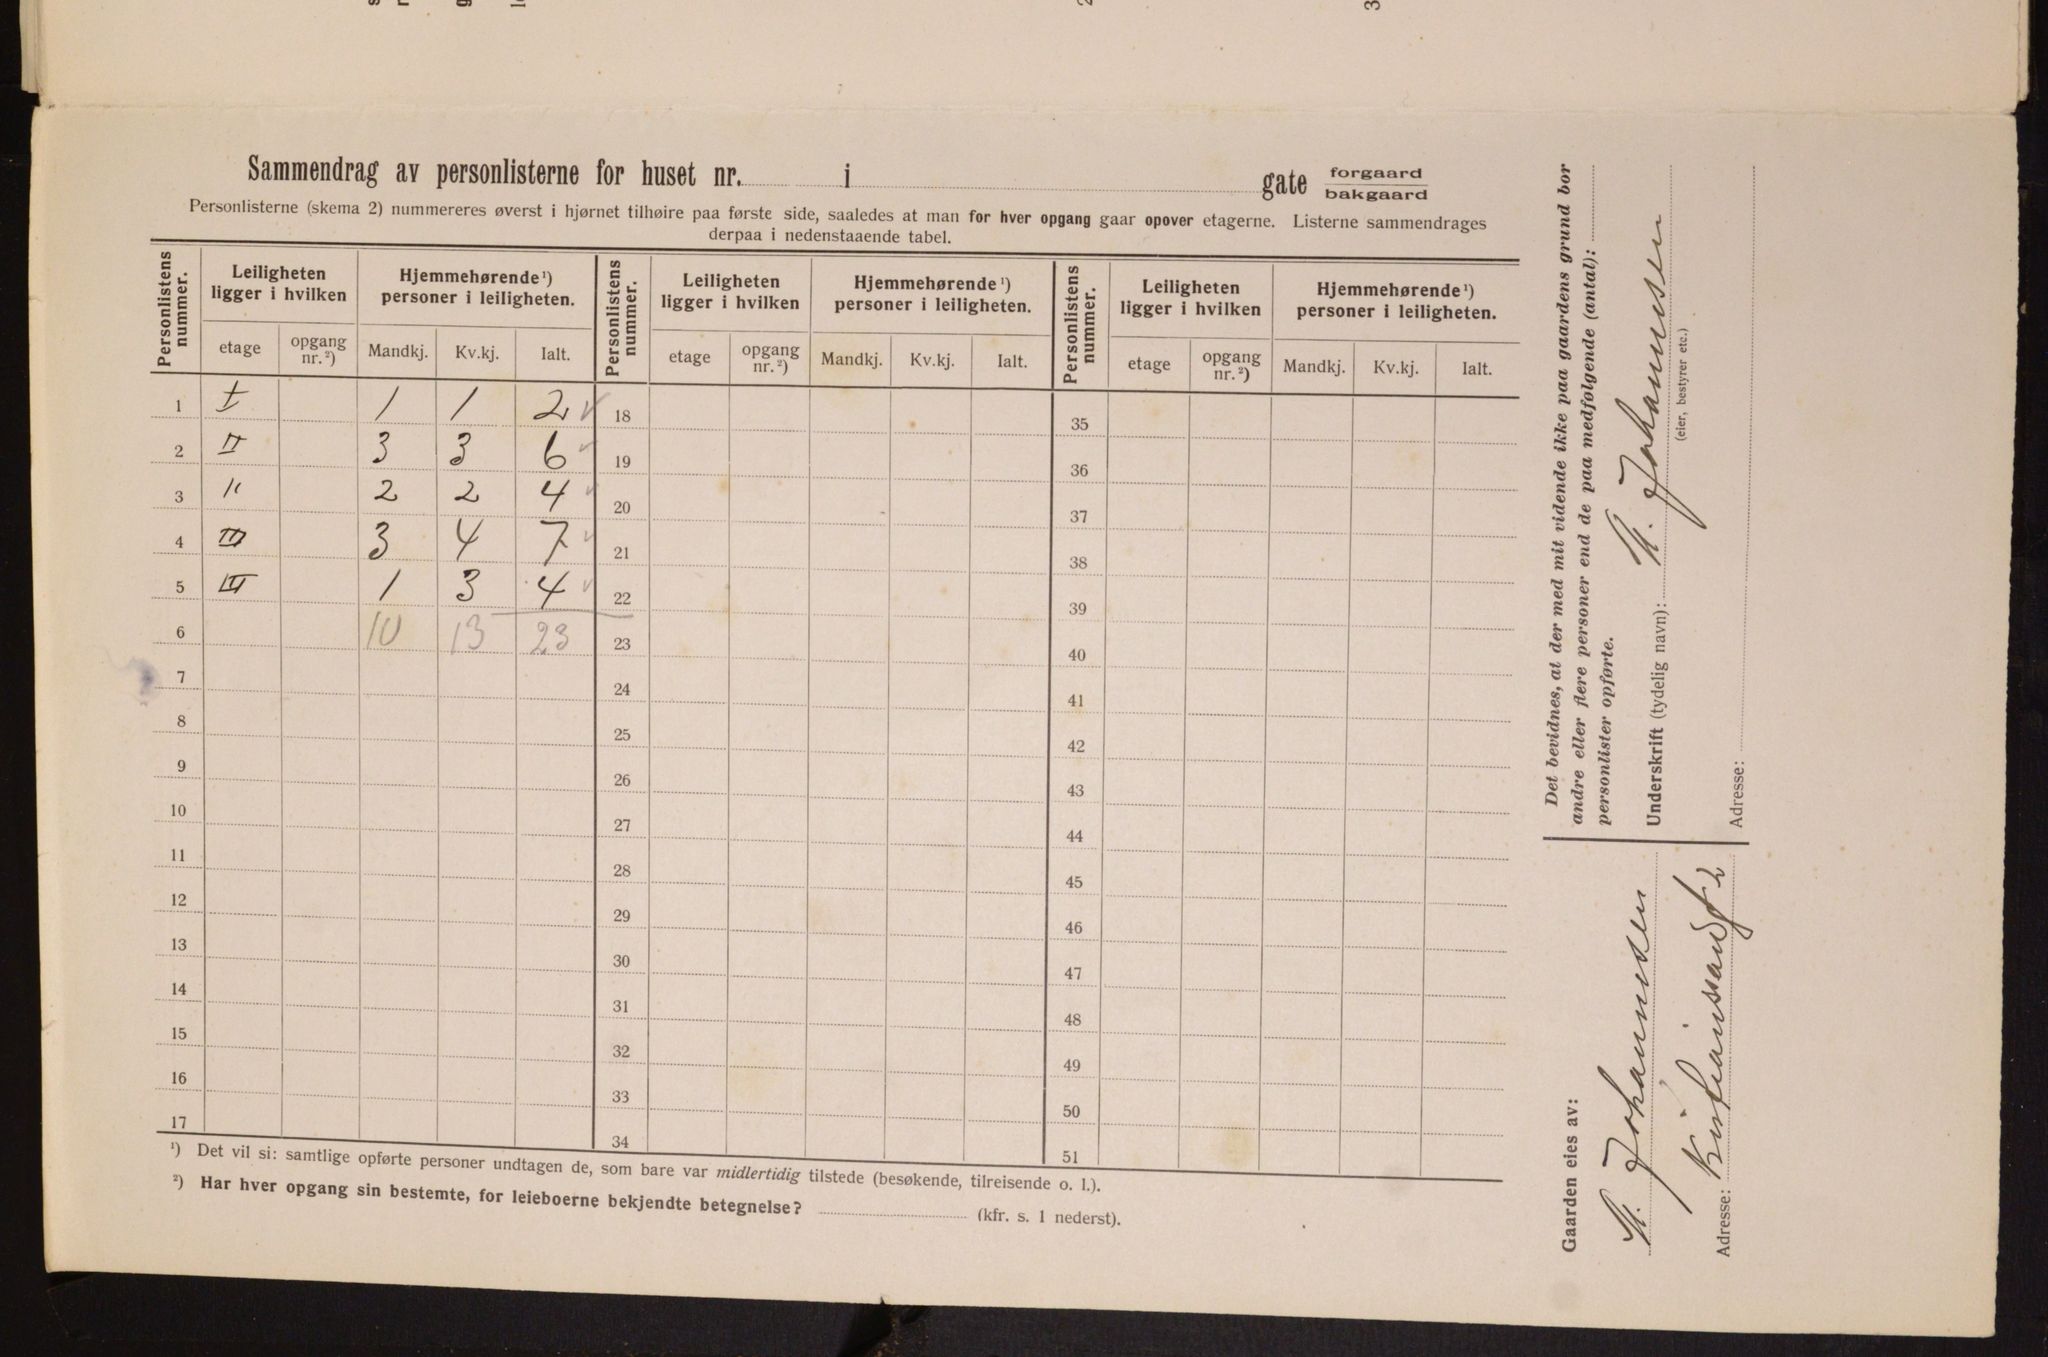 Sammendrag av personlisterne for huset nr. i gate forgaard
bakgaard
Personlisterne (skema 2) nummereres øverst i hjørnet tilhøire paa første side, saaledes at man for hver opgang gaar opover etagerne. Listerne sammendrages
derpaa i nedenstaaende tabel.
Personlistens nummer. Leiligheten ligger i hvilken Hjemmehørende¹) personer i leiligheten. Personlistens nummer. Leiligheten ligger i hvilken Hjemmehørende¹) personer i leiligheten. Personlistens nummer. Leiligheten ligger i hvilken Hjemmehørende¹) personer i leiligheten.
etage opgang nr.²) Mandkj. Kv.kj. Ialt. etage opgang nr.²) Mandkj. Kv.kj. Ialt. etage opgang nr.²) Mandkj. Kv.kj. Ialt.
1 I 1 1 2 18 35
2 II 3 3 6 19 36
3 " 2 2 4 20 37
4 III 3 4 7 21 38
5 III 1 3 4 22 39
6 10 13 23 23 40
7 24 41
8 25 42
9 26 43
10 27 44
11 28 45
12 29 46
13 30 47
14 31 48
15 32 49
16 33 50
17 34 51
¹) Det vil si: samtlige opførte personer undtagen de, som bare var midlertidig tilstede (besøkende, tilreisende o. l.).
²) Har hver opgang sin bestemte, for leieboerne bekjendte betegnelse? (kfr. s. 1 nederst).
Det bevidnes, at der med mit vidende ikke paa gaardens grund bor
andre eller flere personer end de paa medfølgende (antal):
personlister opførte.
Underskrift (tydelig navn): Johannsen
(eier, bestyrer etc.)
Adresse:
Gaarden eies av:
Johannsen
Adresse: Kristianssandgt 2